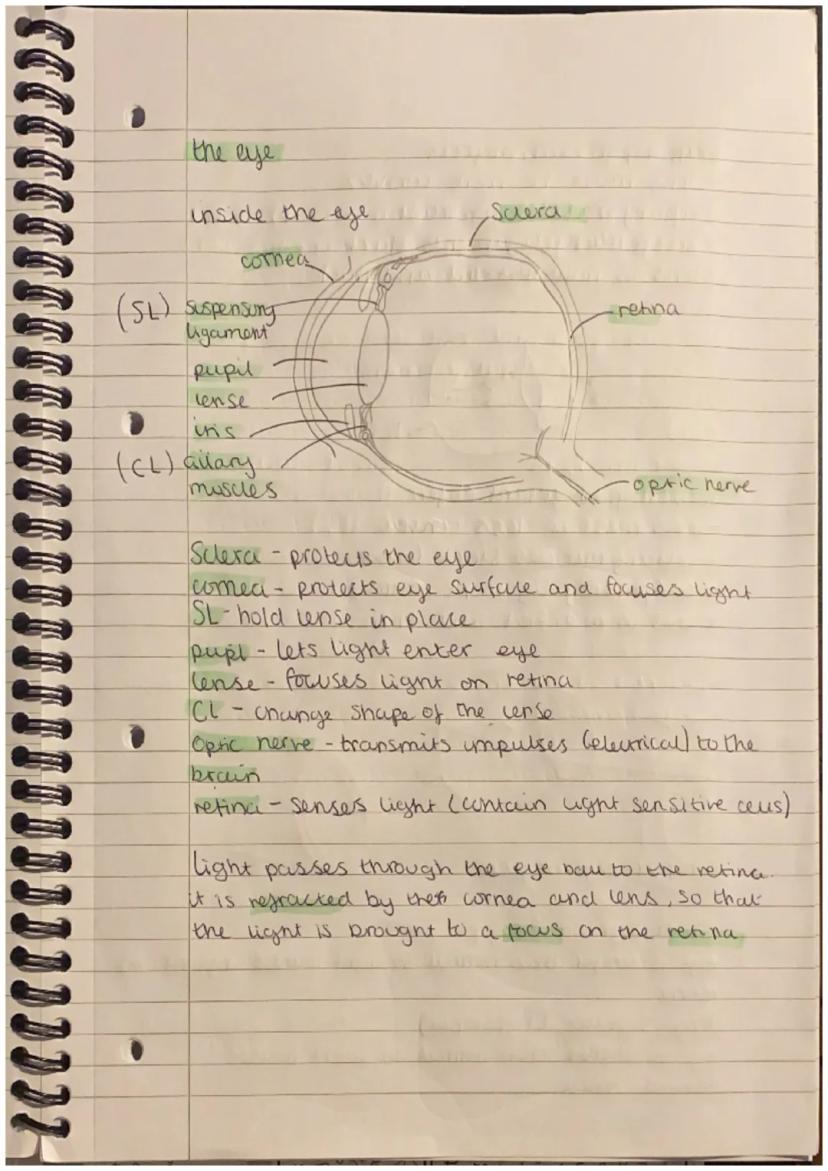 the eye
inside the eye
Sclera
cornea
(SL) suspensory
ligament
retina
pupil
lense
iris
(CL) ciliary
muscles
optic nerve
Sclera - protects the eye
cornea - protects eye surface and focuses light
SL - hold lense in place
pupil - lets light enter eye
lense - focuses light on retina
CL - change shape of the lense
Optic nerve - transmits impulses (electrical) to the
brain
retina - senses light (contain light sensitive cells)
light passes through the eye ball to the retina.
it is refracted by the cornea and lens, so that
the light is brought to a focus on the retina